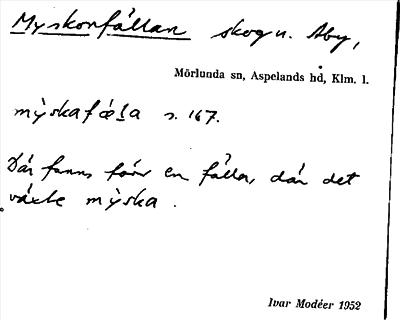 Myskonfållan skog u. Åby,
Mörlunda sn, Aspelands hd, Klm. l.
mỳskafǻ̀la s. 167.
Där fanns förr en fålla, där det
växte mỳska.
Ivar Modéer 1952